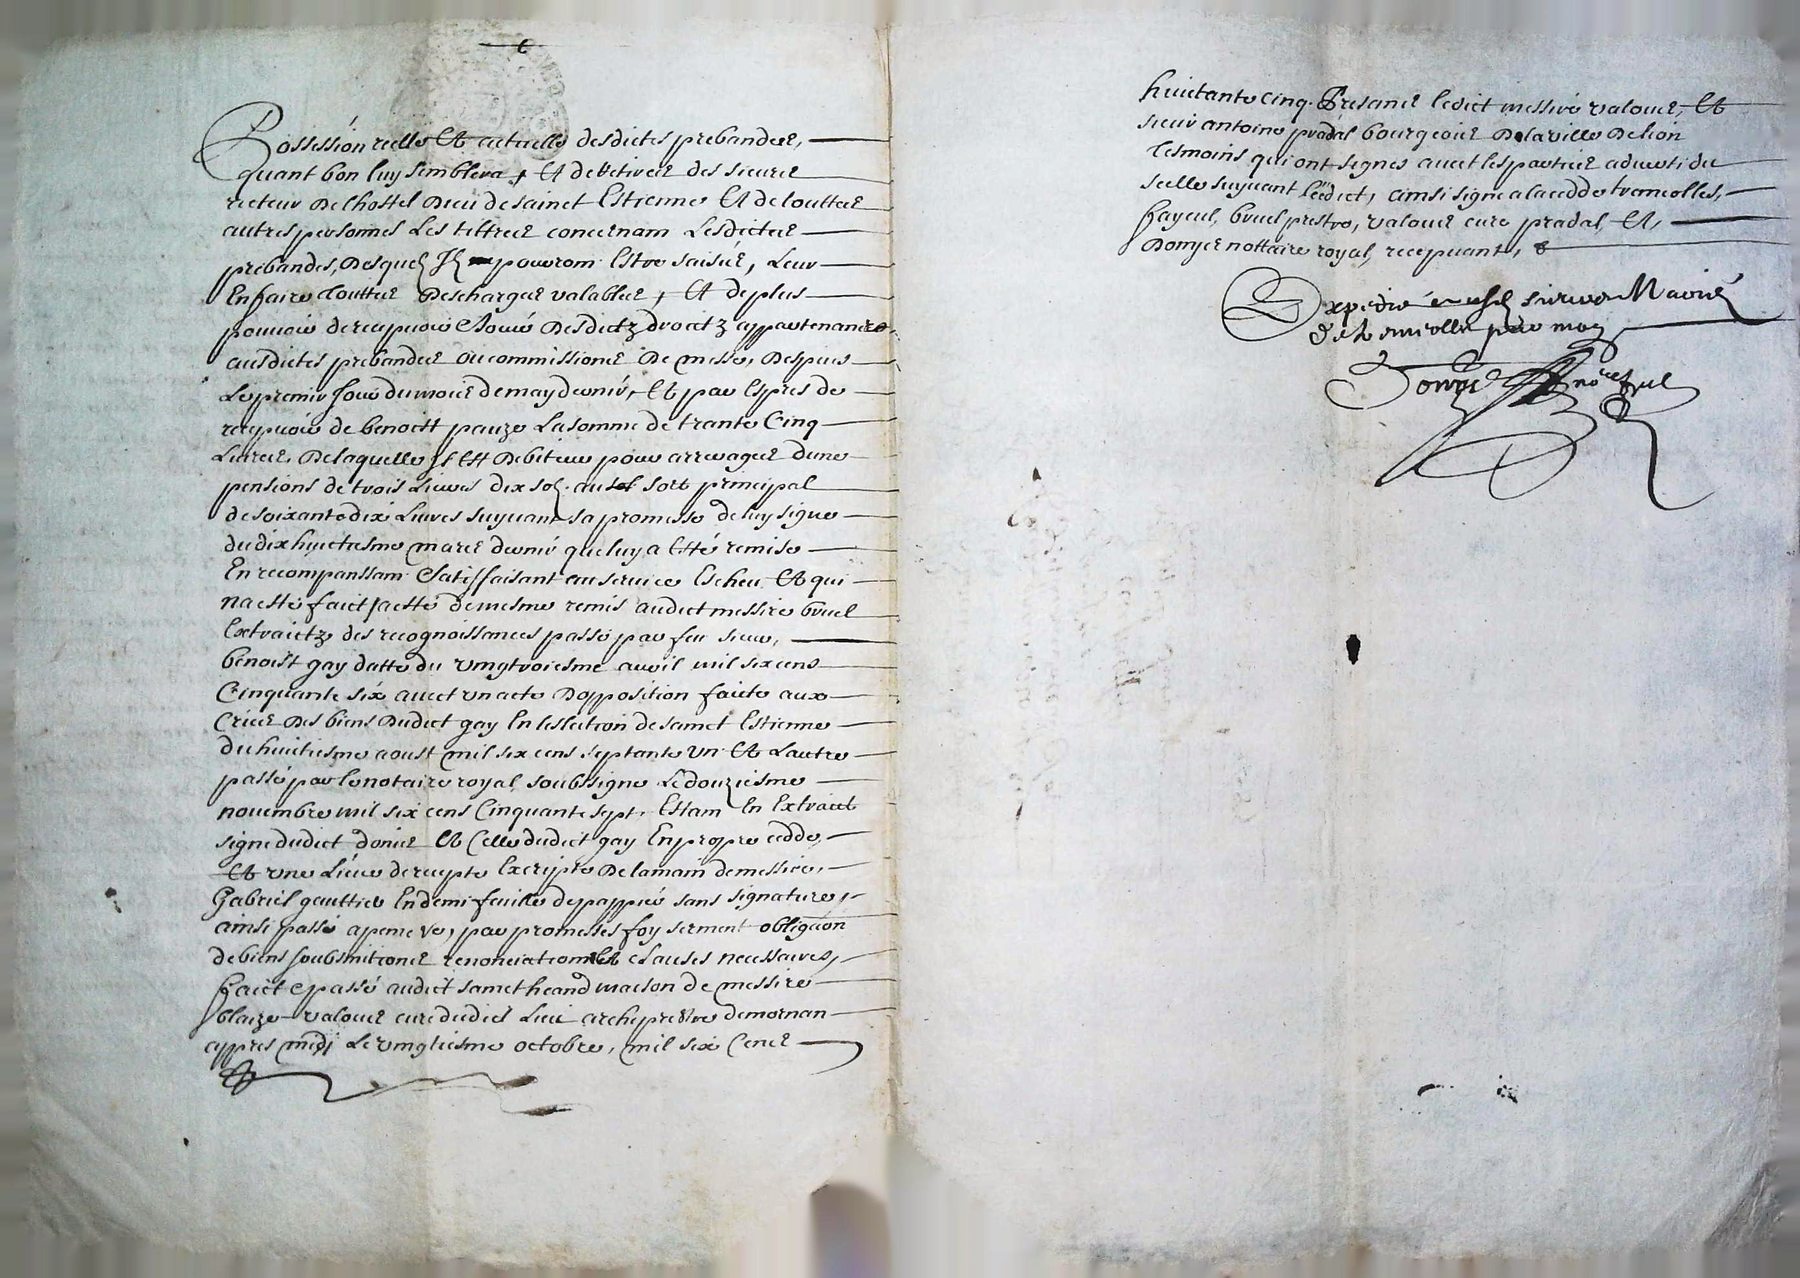 Possession reelle Et actuelle desdictes prebandes,
quant bon luy semblera, Et de Retirer des sieurs
recteur De lhostel Dieu de sainct Estienne Et de touttes
autres personnes Les tiltres concernam Lesdictes
prebandes, Desquelz Ilz pourrom Estre saisis, Leur
En faire touttes Descharges valables, Et de plus
pouvoir de recepvoir Et ouir Desdictz droictz appartenances
ausdictes prebandes ou commissiones De messe, Despuis
Le premier Jour du mois de may dernier, Et par Espres de
recepvoir de benoistt pauze La somme de trante Cinq
Livres, De laquelle Il Est Debiteur pour arrerages dune
pensions de trois Livres dix solz au sort principal
de soixante dix Livres suyuant sa promesse de luy signe
du dix huictiesme mars dernier que luy a Esté remise
En recompanssam Et satisfaisant au service Escheu Et qui
na esté faict a esté de mesme remis audict messire bruel
Extraictz des recognoissances passé par feu sieur,
benoist gay datte du vingtroiesme avril mil six cens
Cinquante six avect un acte Dopposition faicte aux
Cries Des biens Dudict gay En leslection de sainct Estienne
du huitiesme aoust mil six cens septante un Et Lautre
passé par le notaire royal soubssigne Le douziesme
novembre mil six cens Cinquante sept, Estam En Extraict
signe dudict donier Et Celle dudict gay En propre cedde,
Et une Livre de recepte Excripte De la main de messire,
Gabriel gauttier En demi feuille de pappier sans signature,
ainsi passé a peine Vc, par promesses foy serment obligaon
de biens soubsmitiones renonciation Et clauses necessaires,
faict Et passé audict sainct heand maison de messire
blaize valous cure dudict Lieu archeprestre de mornan
appres midi Le vingtiesme octobre, mil six Cens
huictante cinq. Presans ledict messire valous, Et
sieur antoine pradal bourgeois De la ville De lion
Tesmoins qui ont signes avect les parties adverti du
seelle suyuant lédict, ainsi signe a la cedde tremolles,
fayeul, bruel prestre, valous cure pradal, Et,
Donyer nottaire royal, recepvant,
Expedié
de tremolles par moy
Donyer nore royal